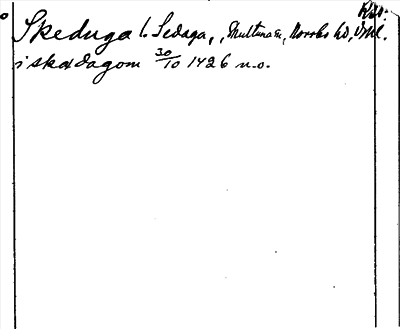 Kbr.
Skeduga l. Sedaga, Skultuna sn, Norrbo hd, Vml.
i skædagom 30/10 1426 u.o.